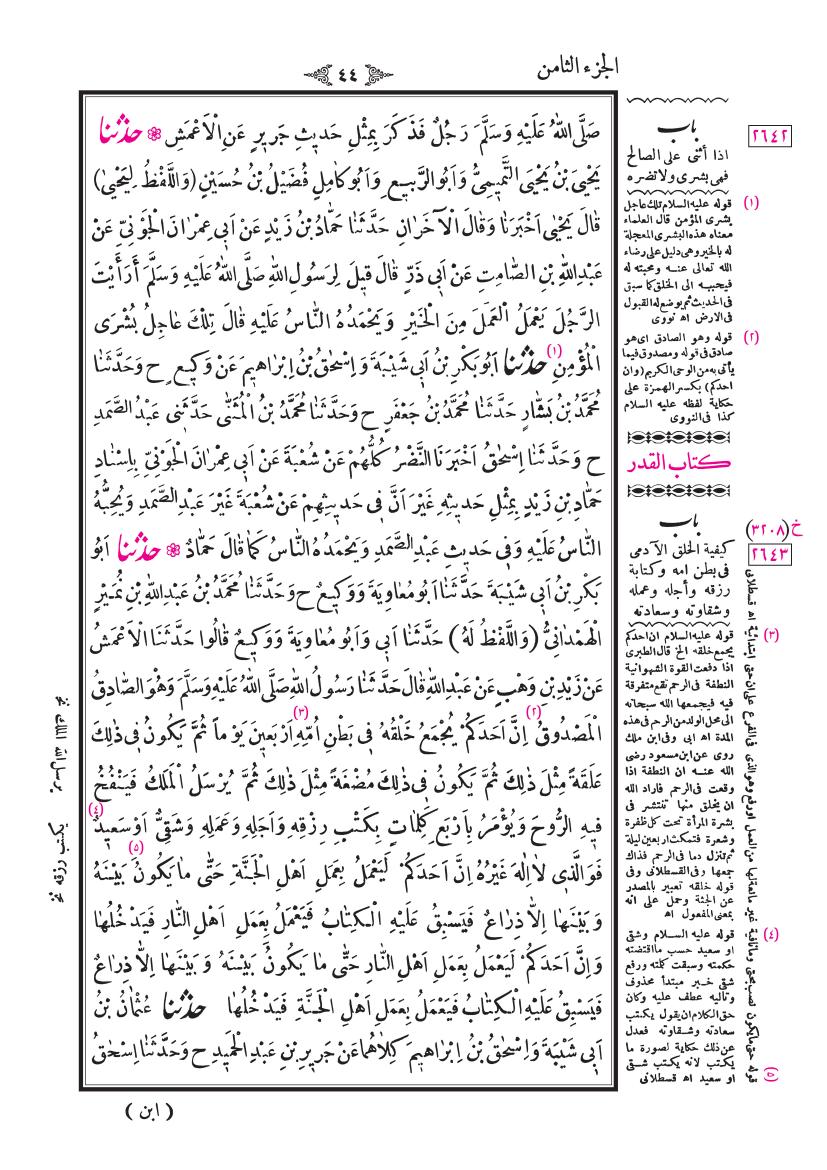 الجزء الثامن
٤٤
صَلَّى اللهُ عَلَيْهِ وَسَلَّمَ رَجُلٌ فَذَكَرَ بِمِثْلِ حَديثِ جَريرٍ عَنِ الْاَعْمَشِ ❁ حدّثنا
يَحْيَى بْنُ يَحْيَى التَّميمِيُّ وَاَبُو الرَّبيعِ وَاَبُو كَامِلٍ فُضَيْلُ بْنُ حُسَيْنٍ (وَاللَّفْظُ لِيَحْيٰى)
قَالَ يَحْيٰى اَخْبَرَنَا وَقَالَ الْآخَرَانِ حَدَّثَنَا حَمَّادُ بْنُ زَيْدٍ عَنْ اَبى عِمْرَانَ الْجَوْنِىِّ عَنْ
عَبْدِ اللهِ بْنِ الصَّامِتِ عَنْ اَبى ذَرٍّ قَالَ قيلَ لِرَسُولِ اللهِ صَلَّى اللهُ عَلَيْهِ وَسَلَّمَ أَرَأَيْتَ
الرَّجُلَ يَعْمَلُ الْعَمَلَ مِنَ الْخَيْرِ وَيَحْمَدُهُ النَّاسُ عَلَيْهِ قَالَ تِلْكَ عَاجِلُ بُشْرَى
الْمُؤْمِنِ (١) حدّثنا اَبُو بَكْرِ بْنُ اَبى شَيْبَةَ وَاِسْحٰقُ بْنُ اِبْرَاهيمَ عَنْ وَكيعٍ ح وَحَدَّثَنَا
مُحَمَّدُ بْنُ بَشَّارٍ حَدَّثَنَا مُحَمَّدُ بْنُ جَعْفَرٍ ح وَحَدَّثَنَا مُحَمَّدُ بْنُ الْمُثَنّٰى حَدَّثَنى عَبْدُ الصَّمَدِ
ح وَحَدَّثَنَا اِسْحٰقُ اَخْبَرَنَا النَّضْرُ كُلُّهُمْ عَنْ شُعْبَةَ عَنْ اَبى عِمْرَانَ الْجَوْنِىِّ بِاِسْنَادِ
حَمَّادِ بْنِ زَيْدٍ بِمِثْلِ حَديثِهِ غَيْرَ اَنَّ فى حَديثِهِمْ عَنْ شُعْبَةَ غَيْرَ عَبْدِ الصَّمَدِ وَيُحِبُّهُ
النَّاسُ عَلَيْهِ وَفى حَديثِ عَبْدِ الصَّمَدِ وَيَحْمَدُهُ النَّاسُ كَمَا قَالَ حَمَّادٌ ❁ حدّثنا اَبُو
بَكْرِ بْنُ اَبى شَيْبَةَ حَدَّثَنَا اَبُو مُعَاوِيَةَ وَوَكيعٌ ح وَحَدَّثَنَا مُحَمَّدُ بْنُ عَبْدِ اللهِ بْنِ نُمَيْرٍ
الْهَمْدَانِىُّ (وَاللَّفْظُ لَهُ) حَدَّثَنَا اَبى وَاَبُو مُعَاوِيَةَ وَوَكيعٌ قَالُوا حَدَّثَنَا الْاَعْمَشُ
عَنْ زَيْدِ بْنِ وَهْبٍ عَنْ عَبْدِ اللهِ قَالَ حَدَّثَنَا رَسُولُ اللهِ صَلَّى اللهُ عَلَيْهِ وَسَلَّمَ وَهُوَ الصَّادِقُ
الْمَصْدُوقُ (٢) اِنَّ اَحَدَكُمْ يُجْمَعُ خَلْقُهُ فى بَطْنِ اُمِّهِ (٣) اَرْبَعينَ يَوْمًا ثُمَّ يَكُونُ فى ذٰلِكَ
عَلَقَةً مِثْلَ ذٰلِكَ ثُمَّ يَكُونُ فى ذٰلِكَ مُضْغَةً مِثْلَ ذٰلِكَ ثُمَّ يُرْسَلُ الْمَلَكُ فَيَنْفُخُ
فيهِ الرُّوحَ وَيُؤْمَرُ بِاَرْبَعِ كَلِمَاتٍ بِكَتْبِ رِزْقِهِ وَاَجَلِهِ وَعَمَلِهِ وَشَقِىٌّ اَوْ سَعيدٌ (٤)
فَوَالَّذى لَا اِلٰهَ غَيْرُهُ اِنَّ اَحَدَكُمْ لَيَعْمَلُ بِعَمَلِ اَهْلِ الْجَنَّةِ حَتّٰى مَا يَكُونُ (٥) بَيْنَهُ
وَبَيْنَهَا اِلَّا ذِرَاعٌ فَيَسْبِقُ عَلَيْهِ الْكِتَابُ فَيَعْمَلُ بِعَمَلِ اَهْلِ النَّارِ فَيَدْخُلُهَا
وَاِنَّ اَحَدَكُمْ لَيَعْمَلُ بِعَمَلِ اَهْلِ النَّارِ حَتّٰى مَا يَكُونُ بَيْنَهُ وَبَيْنَهَا اِلَّا ذِرَاعٌ
فَيَسْبِقُ عَلَيْهِ الْكِتَابُ فَيَعْمَلُ بِعَمَلِ اَهْلِ الْجَنَّةِ فَيَدْخُلُهَا حدّثنا عُثْمَانُ بْنُ
اَبى شَيْبَةَ وَاِسْحٰقُ بْنُ اِبْرَاهيمَ كِلَاهُمَا عَنْ جَريرِ بْنِ عَبْدِ الْحَميدِ ح وَحَدَّثَنَا اِسْحٰقُ
( ابن )
٢٦٤٢
باب
اذا أثنى على الصالح
فهى بشرى ولا تضره
(١) قوله عليه السلام تلك عاجل
بشرى المؤمن قال العلماء
معناه هذه البشرى المعجلة
له بالخير وهى دليل على رضاء
الله تعالى عنه ومحبته له
فيحببه الى الخلق كما سبق
فى الحديث ثم يوضع له القبول
فى الارض اه نووى
(٢) قوله وهو الصادق اى هو
صادق فى قوله ومصدوق فيما
يأتى به من الوحى الكريم (وان
احدكم) بكسر الهمزة على
حكاية لفظه عليه السلام
كذا فى النووى
كتاب القدر
باب
خ (٣٢٠٨)
٢٦٤٣
كيفية الخلق الآدمى
فى بطن امه وكتابة
رزقه وأجله وعمله
وشقاوته وسعادته
(٣) قوله عليه السلام ان احدكم
يجمع خلقه الخ قال الطبرى
اذا دفعت القوة الشهوانية
النطفة فى الرحم تقع متفرقة
فيه فيجمعها الله سبحانه
الى محل الولد من الرحم فى هذه
المدة اه ابى وفى ابن ملك
روى عن ابن مسعود رضى
الله عنه ان النطفة اذا
وقعت فى الرحم فاراد الله
ان يخلق منها تنتشر فى
بشرة المرأة تحت كل ظفرة
وشعرة فتمكث اربعين ليلة
ثم تنزل دما فى الرحم فذاك
جمعها وفى القسطلانى وفى
قوله خلقه تعبير بالمصدر
عن الجثة وحمل على انه
بمعنى المفعول اه
(٤) قوله عليه السلام وشقى
او سعيد حسب ما اقتضته
حكمته وسبقت كلمته ورفع
شقى خبر مبتدأ محذوف
وتاليه عطف عليه وكان
حق الكلام ان يقول يكتب
سعادته وشقاوته فعدل
عن ذلك حكاية لصورة ما
يكتب لانه يكتب شقى
او سعيد اه قسطلانى
(٥) قوله حتى ما يكون نصب بحتى وما نافية غير مانعة لها من العمل او رفع وهو الذى فى الفرع على ان حتى ابتدائية اه قسطلانى
يرسل الله الملك نخ
بكتب رزقه نخ